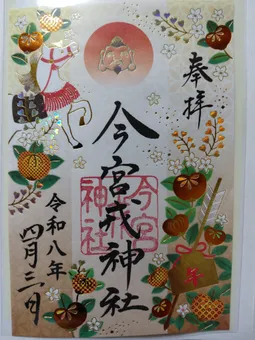 奉拝
今宮戎神社
今宮
神社
令和八年
四月三日